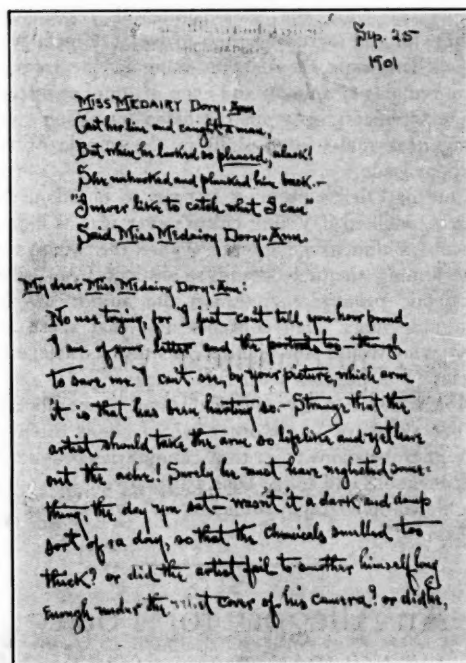 Sep. 25
1901
Miss Medairy Dory-Ann
Cast her line and caught a man,
But when he looked so pleased, alack!
She unhooked and plunked him back.-
"I never like to catch what I can"
Said Miss Medairy Dory-Ann.
My dear Miss Medairy Dory-Ann:
No use trying, for I just can't tell you how proud
I am of your letter and the portrait too - though
to save me I can't see, by your picture, which arm
it is that has been hurting so.- Strange that the
artist should take the arm so lifelike and yet leave
out the ache! Surely he must have neglected some-
thing, the day you sat - wasn't it a dark and damp
sort of a day, so that the chemicals smelled too
thick? or did the artist fail to smother himself long
enough under the cover of his camera? or did he,